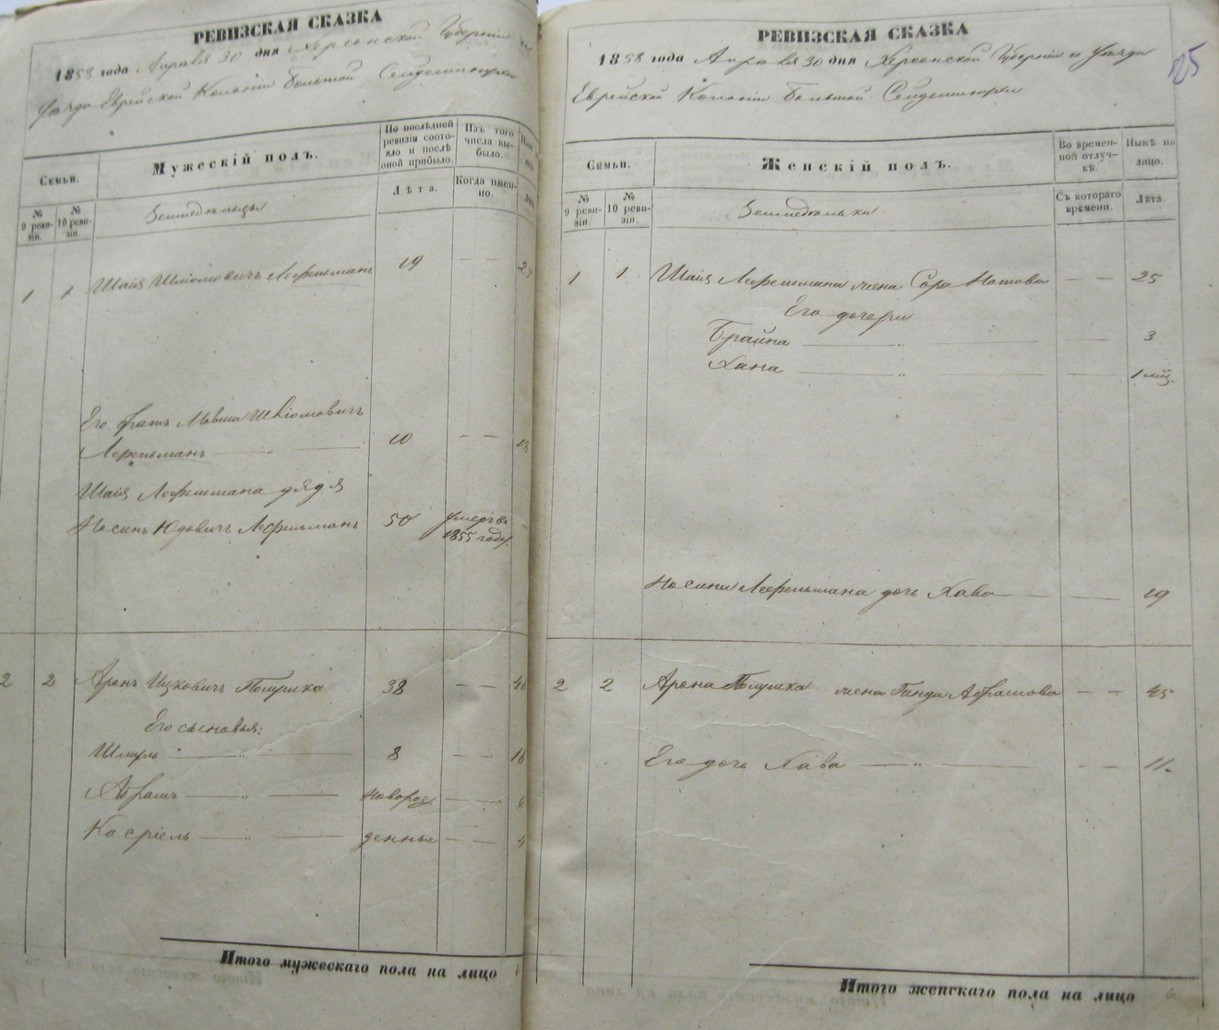 РЕВИЗСКАЯ СКАЗКА
1858 года Апреля 30 дня Херсонской Губерніи и
Уезда Еврейской Колоніи Большой Сейдеминухи
Семьи.
Мужескій полъ.
По послѣдней ревизіи состояло и послѣ оной прибыло.
Изъ того числа выбыло.
№ 9 ревизіи.
№ 10 ревизіи.
Земледельцы
Лѣта.
Когда именно.
1 1 Шаія Шліомовичъ Лефельманъ 19 — — 27
Его братъ Мовша Шліомовичъ
Лефельманъ — „ — 10 — —
Шаія Лефельмана дядя
Носинъ Юдовичъ Лефельманъ 50 умеръ въ
1855 году.
2 2 Аронъ Ицковичъ Полушка 38 — — 46
Его сыновья:
Шмуль — „ — 8 — — 16
Абрамъ — „ — новорож — — 6
Касріель — „ — денные — — 4
Итого мужескаго пола на лицо
РЕВИЗСКАЯ СКАЗКА
1858 года Апреля 30 дня Херсонской Губерніи и Уезда
Еврейской Колоніи Большой Сейдеминухи
Семьи.
Женскій полъ.
Во временной отлучкѣ.
Нынѣ на лицо.
№ 9 ревизіи.
№ 10 ревизіи.
Земледельки
Съ котораго времени.
Лѣта.
1 1 Шаія Лефельмана жена Сора Нотова — — 25
Его дочери
Брайна — „ — — 3
Хана — „ — — 1 мѣс.
Носина Лефельмана дочь Хава — — 19
2 2 Арона Полушка жена Гинда Абрамова — — 45
Его дочь Хава — „ — — — 11
Итого женскаго пола на лицо 6